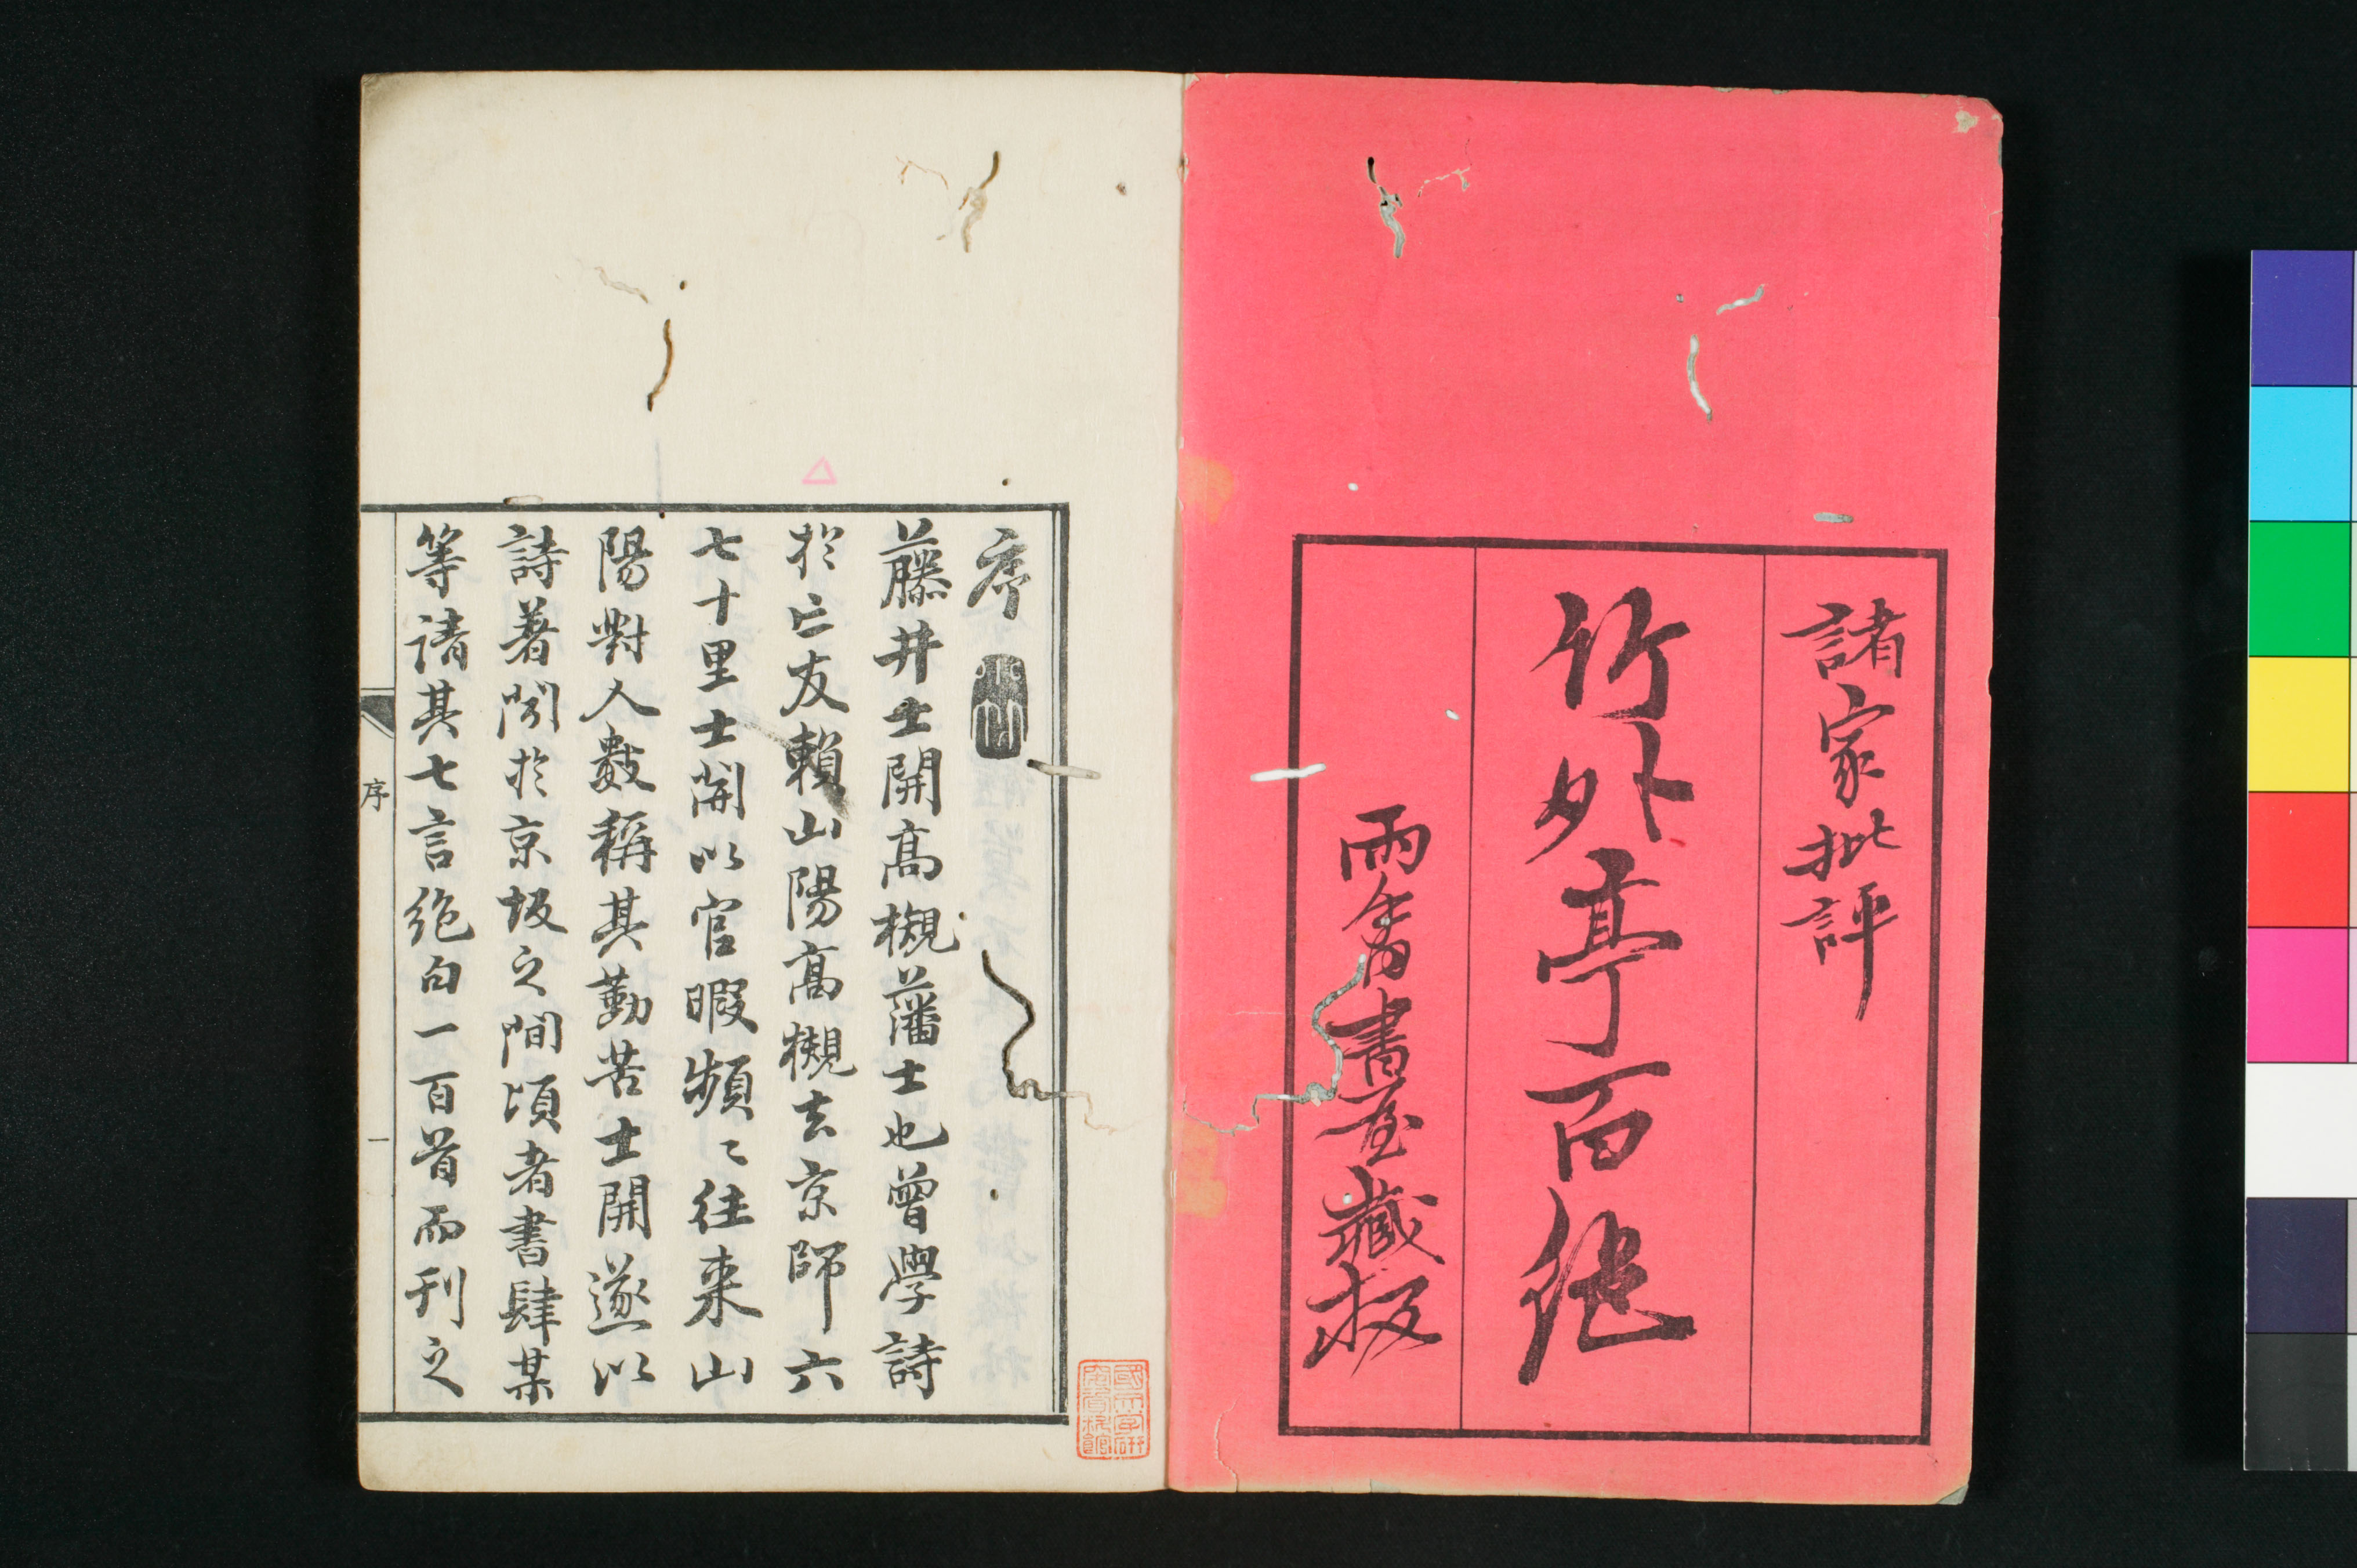 諸家批評
竹外亭百絶
雨香書屋藏板
序
藤井士開髙槻藩士也曽學詩
於亡友賴山陽髙槻去京師六
七十里士開以官暇頻〻往来山
陽對人數稱其勤苦士開遂以
詩著聞於京坂之間頃者書肆某
等請其七言絶句一百首而刊之
序
一